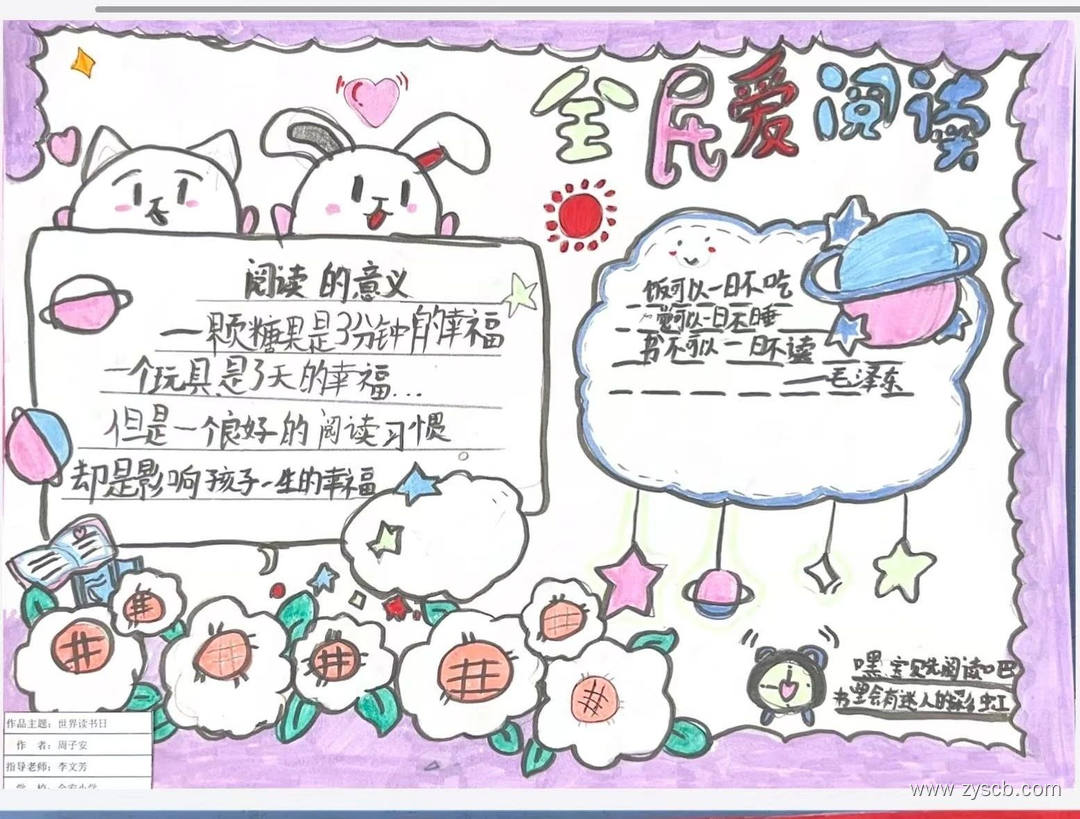 全民爱阅读
阅读的意义
一颗糖果是3分钟的幸福
一个玩具是3天的幸福...
但是一个良好的阅读习惯
却是影响孩子一生的幸福
饭可以一日不吃
觉可以一日不睡
书不可以一日不读
——毛泽东
嘿宝贝先阅读吧
书里会有迷人的彩虹
作品主题：世界读书日
作 者：周子安
指导老师：李文芳
www.zyscb.com